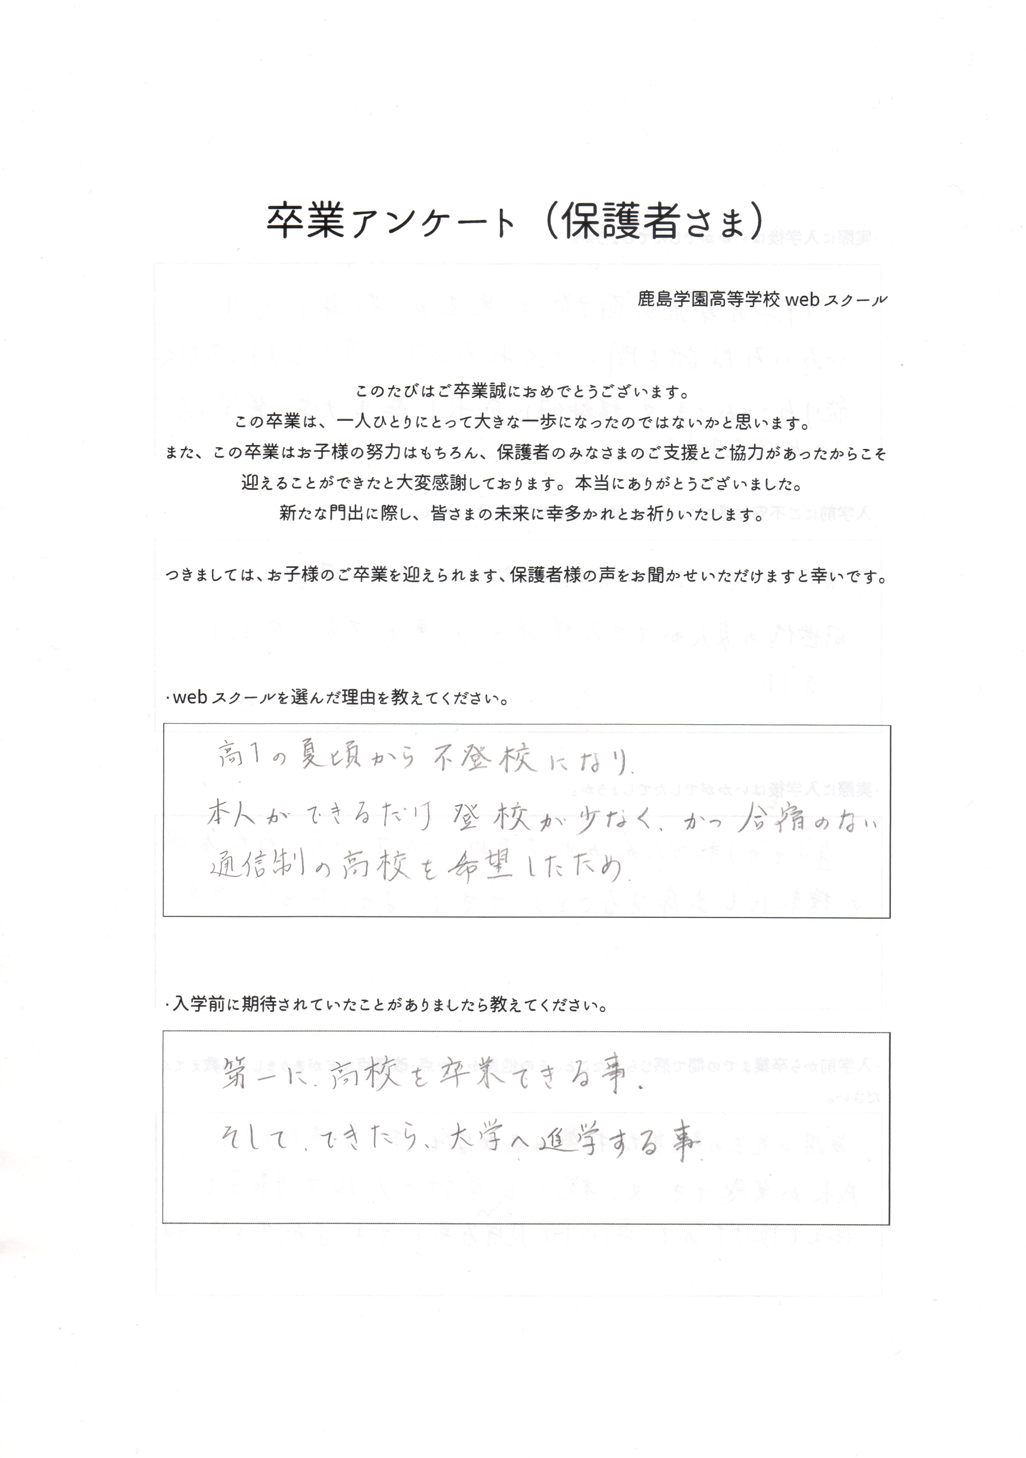 卒業アンケート（保護者さま）
鹿島学園高等学校 web スクール
このたびはご卒業誠におめでとうございます。
この卒業は、一人ひとりにとって大きな一歩になったのではないかと思います。
また、この卒業はお子様の努力はもちろん、保護者のみなさまのご支援とご協力があったからこそ
迎えることができたと大変感謝しております。本当にありがとうございました。
新たな門出に際し、皆さまの未来に幸多かれとお祈りいたします。
つきましては、お子様のご卒業を迎えられます、保護者様の声をお聞かせいただけますと幸いです。
・web スクールを選んだ理由を教えてください。
高1の夏頃から不登校になり、
本人ができるだけ登校が少なく、かつ合宿のない
通信制の高校を希望したため。
・入学前に期待されていたことがありましたら教えてください。
第一に、高校を卒業できる事。
そして、できたら、大学へ進学する事。